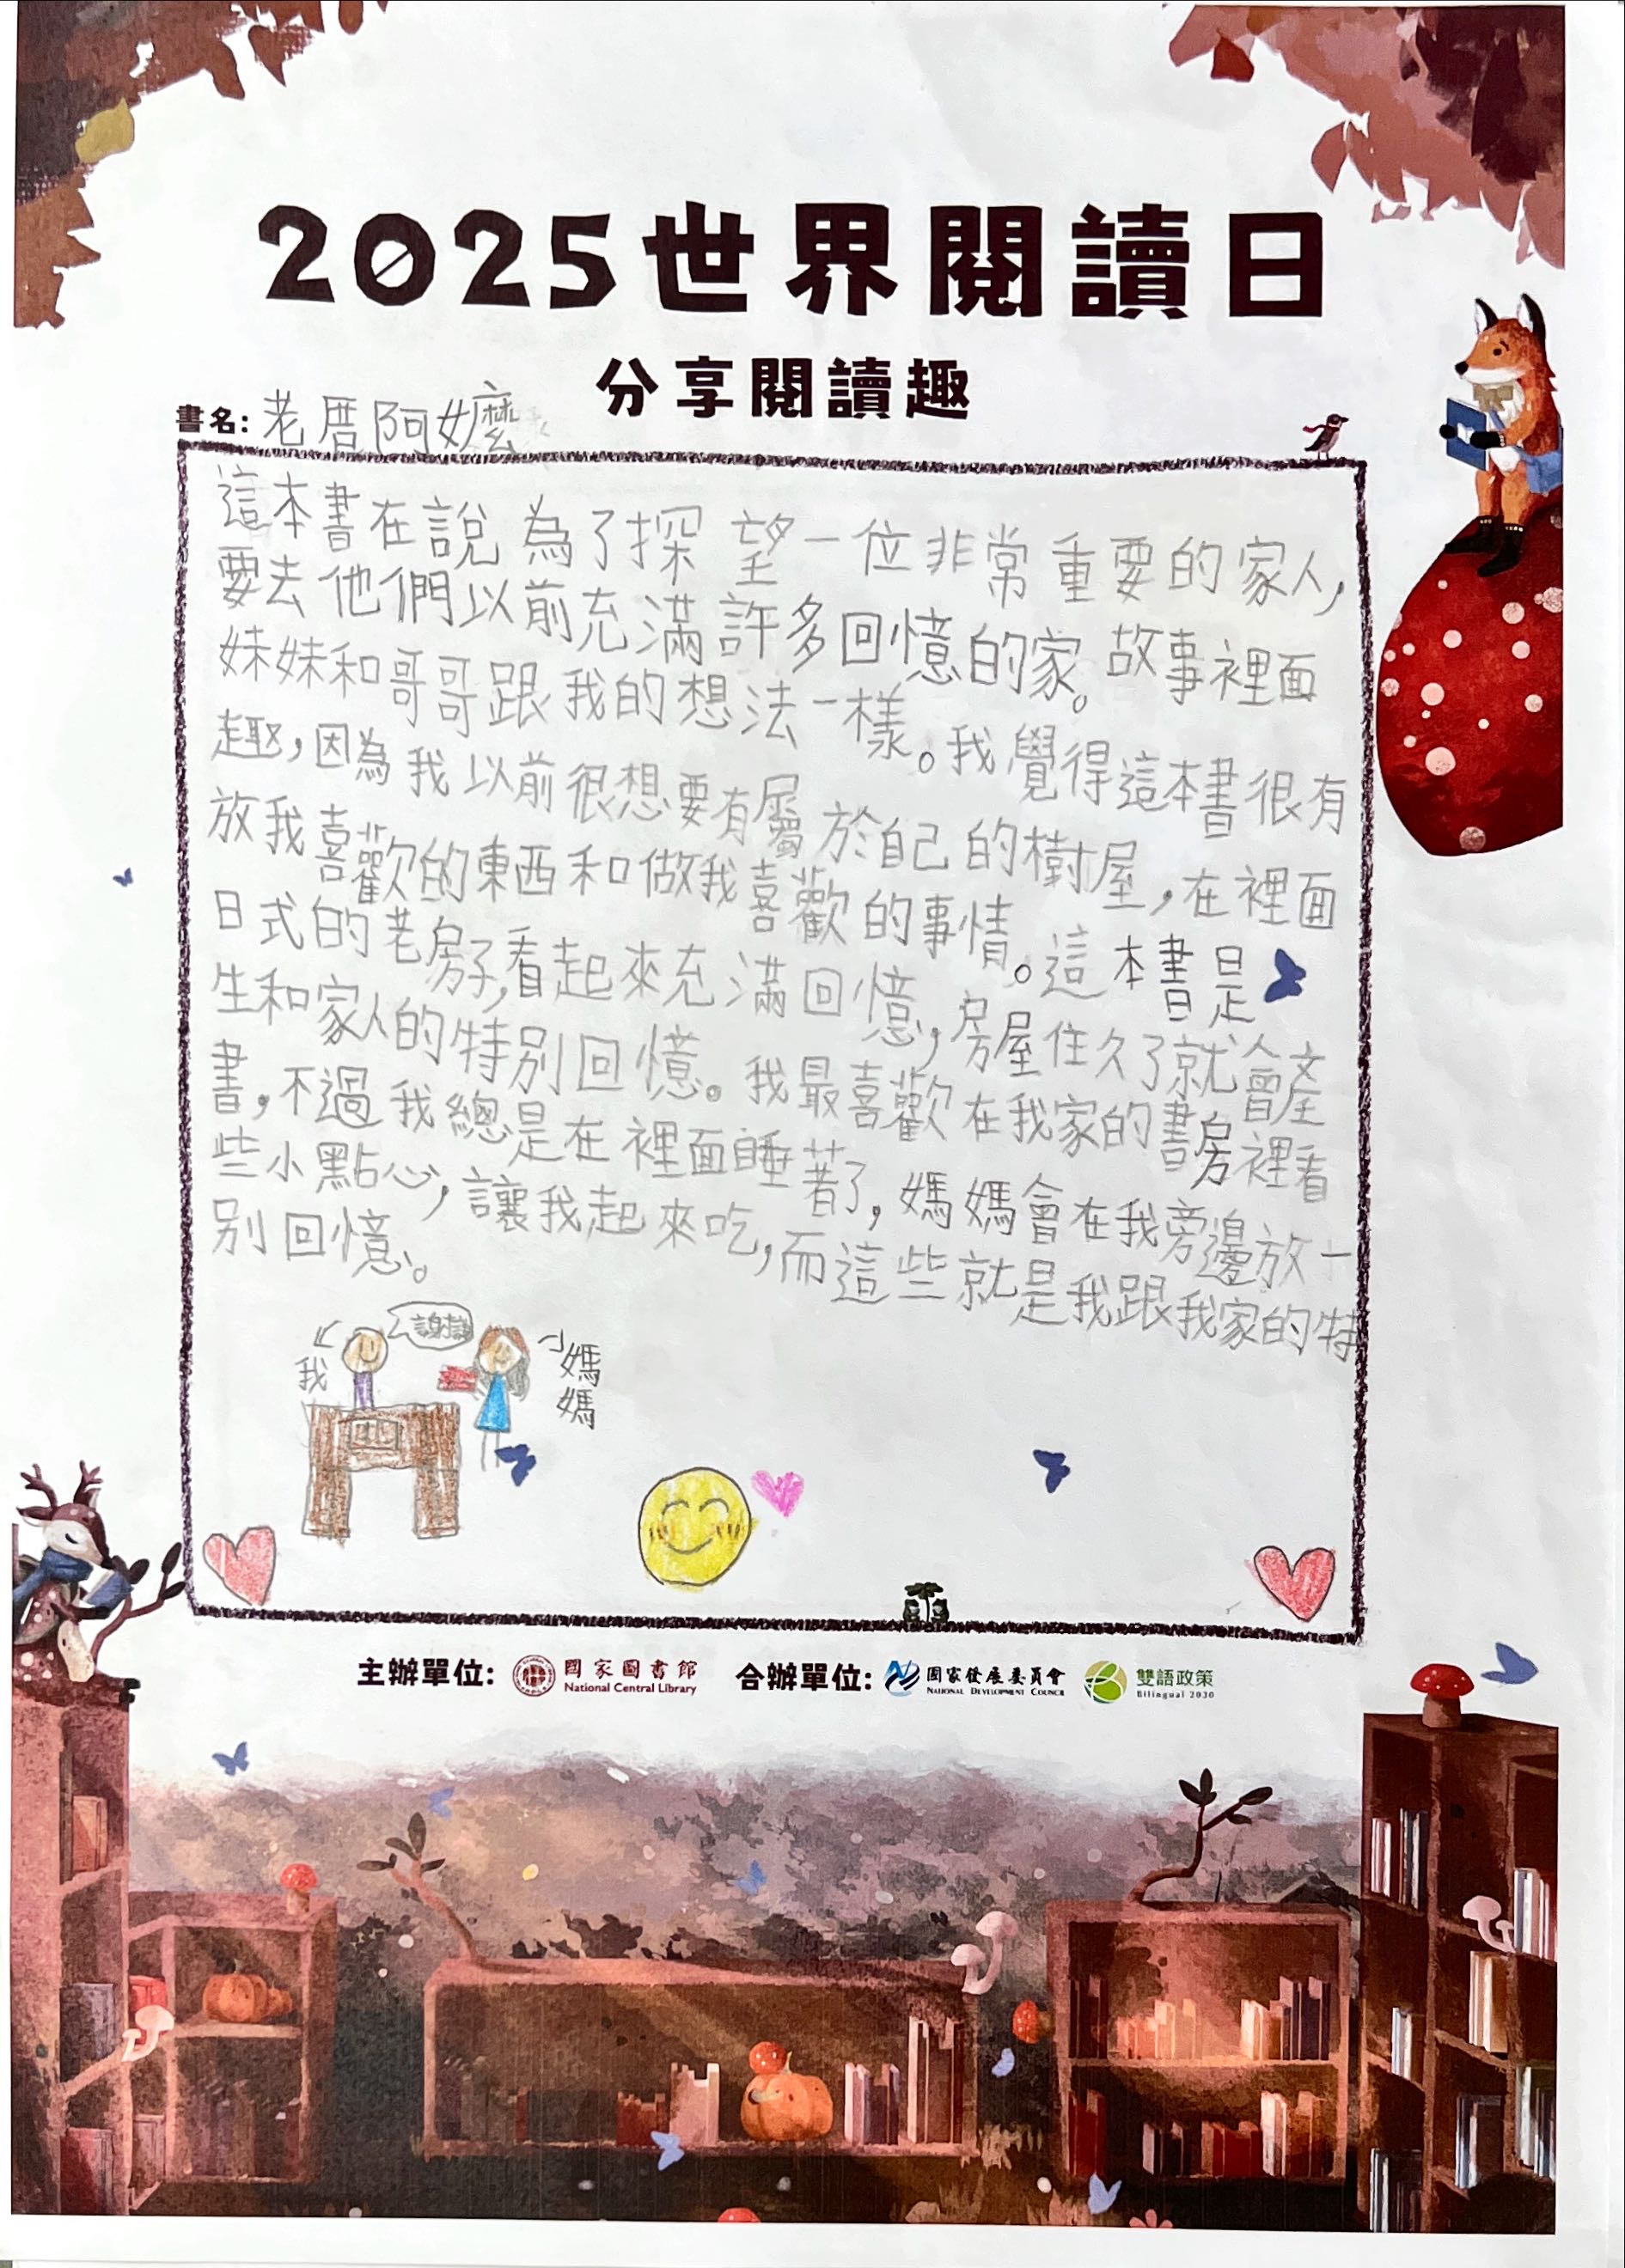 2025世界閱讀日
分享閱讀趣
書名: 老厝阿嬤
這本書在說為了探望一位非常重要的家人,
要去他們以前充滿許多回憶的家。故事裡面
妹妹和哥哥跟我的想法一樣。我覺得這本書很有
趣,因為我以前很想要有屬於自己的樹屋,在裡面
放我喜歡的東西和做我喜歡的事情。這本書是
日式的老房子,看起來充滿回憶,房屋住久了就會產
生和家人的特別回憶。我最喜歡在我家的書房裡看
書,不過我總是在裡面睡著了,媽媽會在我旁邊放一
些小點心,讓我起來吃,而這些就是我跟我家的特
別回憶。
謝謝
我
媽媽
主辦單位: 國家圖書館 National Central Library 合辦單位: 國家發展委員會 National Development Council 雙語政策 Bilingual 2030